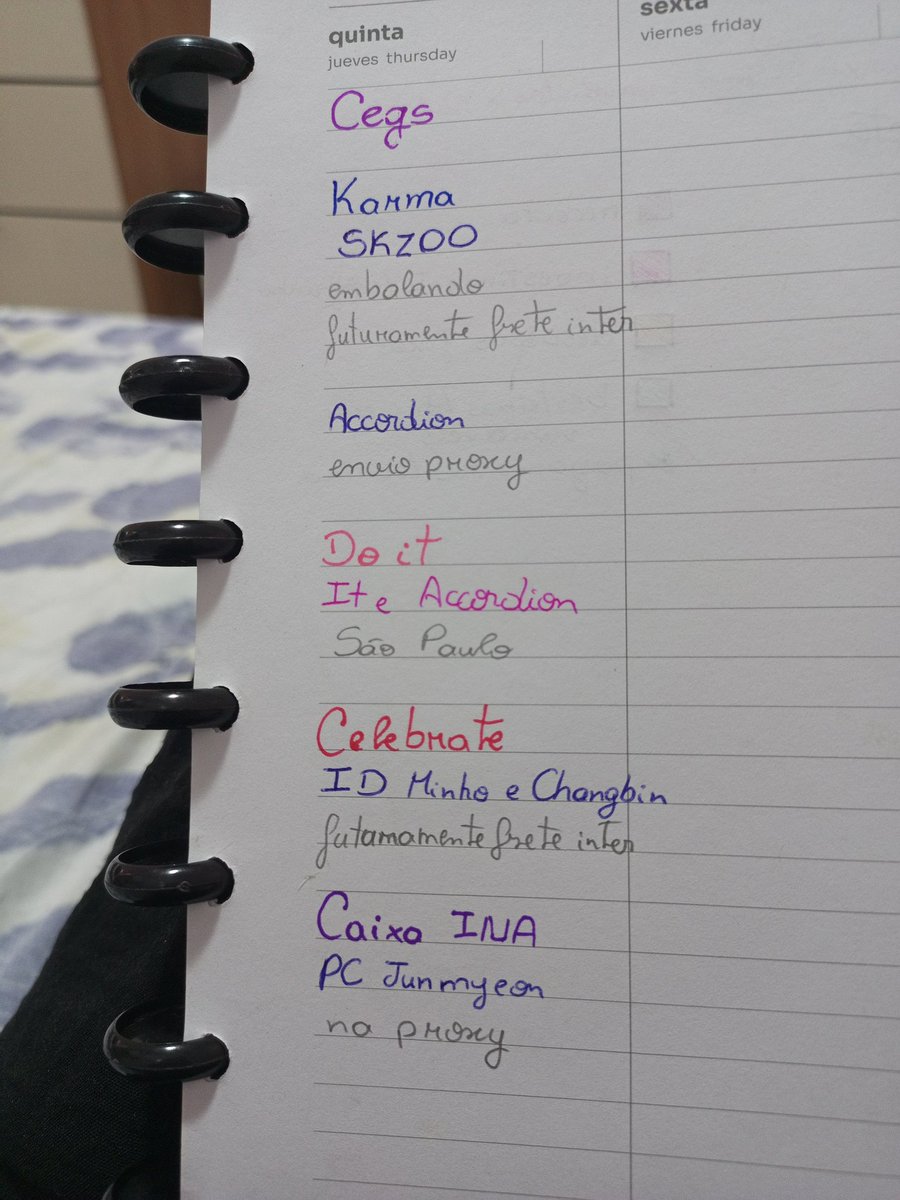 quinta
jueves thursday
sexta
viernes friday
Cegs
Karma
SKZOO
embalando
futuramente frete inter
Accordion
envio proxy
Do it
It e Accordion
São Paulo
Celebrate
ID Minho e Changbin
futamamente frete inter
Caixa INA
PC Junmyeon
na proxy